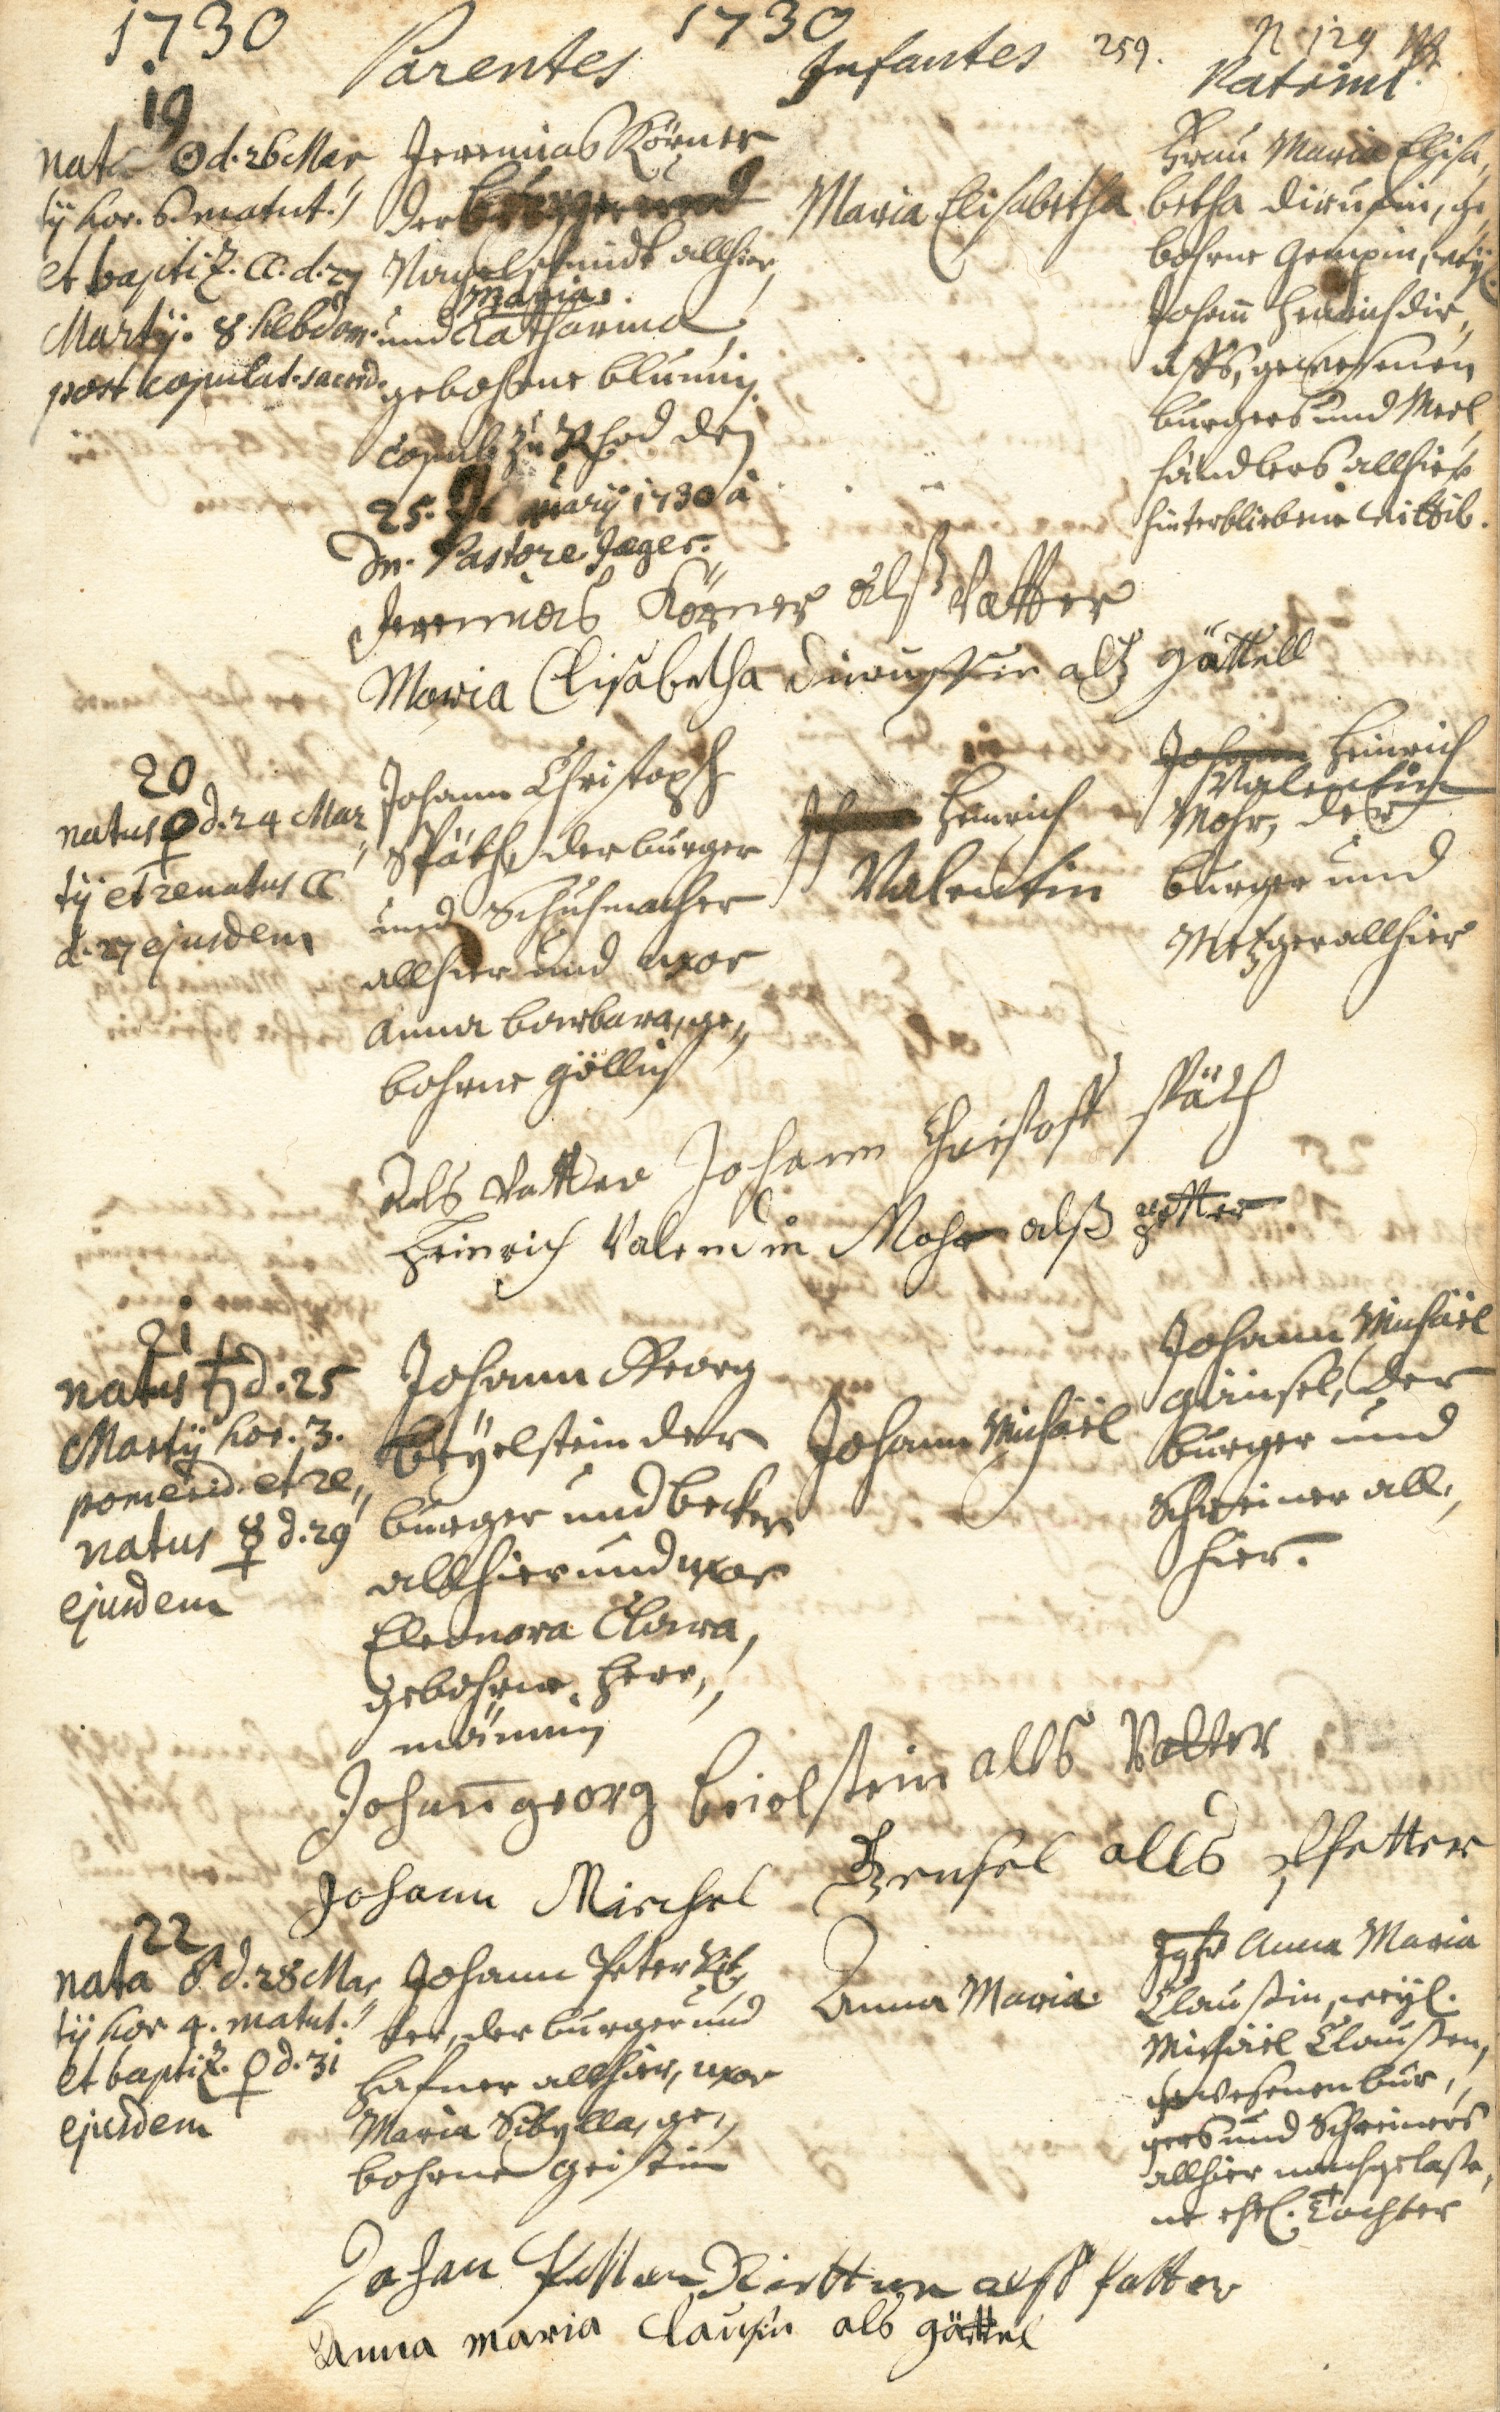 1730 1730
Parentes Infantes 259. N 129
Patrini.
19
nata ☉ d. 26 Mar„
tÿ hor. 6 matut.
et baptiz. ☾. d. 27
Martÿ. 8 hebdom.
post copulat. sacerd.
Jeremias Körner
der burger und
Nagelschmidt allhier,
Maria
und Catharina
gebohrne blumin.
copul. zu Rhod den
25. arÿ 1730 à
Dn. Pastore Jaeger.
Maria Elisabetha
Frau Maria Elisa„
betha Dirussin, ge„
bohrne Gempin, weÿl.
Johann Heinrich Dir„
usses, gewesenen
burgers und Meel„
händlers allhier
hinterbliebene wittib.
Jeremias Körner alß Vatter
Maria Elisabetha Dirussin alß göttell
20
natus ♀ d. 24 Mar„
tÿ et renatus ☾
d. 27 ejusdem
Johann Christoph
Späth, der burger
und Schuhmacher
allhier und uxor
Anna barbara, ge„
bohrne göllin
Johann Heinrich
Valentin
Johann Heinrich
Valentin
Mohr, der
burger und
Metzger allhier
Als Vatter Johann Christoff späth
Heinrich Valendin Mohr alß götter
21
natus ♄ d. 25
Martÿ hor. 3.
pomerid. et re„
natus ☿ d. 29
ejusdem
Johann Georg
beÿelstein der
burger und becker
allhier und uxor
Eleonora Clara,
gebohrne Herr„
männin
Johann Michäel
Johann Michäel
Gänsel, der
burger und
Schreiner all„
hier.
Johann georg beielstein alls Vatter
Johann Michel Gensel alls Pfetter
22
nata ♂ d. 28 Mar„
tÿ hor 4. matut.
et baptiz. ♀ d. 31
ejusdem
Johann Peter Rit„
ter, der burger und
Hafner allhier, uxor
Maria Sibylla, ge„
bohrne geistin
Anna Maria
Jgfr Anna Maria
Claussin, weyl.
Michäel Claussen,
gewesenen bur„
gers und Schreiners
allhier nachgelasse„
ne ehl. Tochter
Johan Petter Rietter alß fatter
Anna maria Clausin als göttel